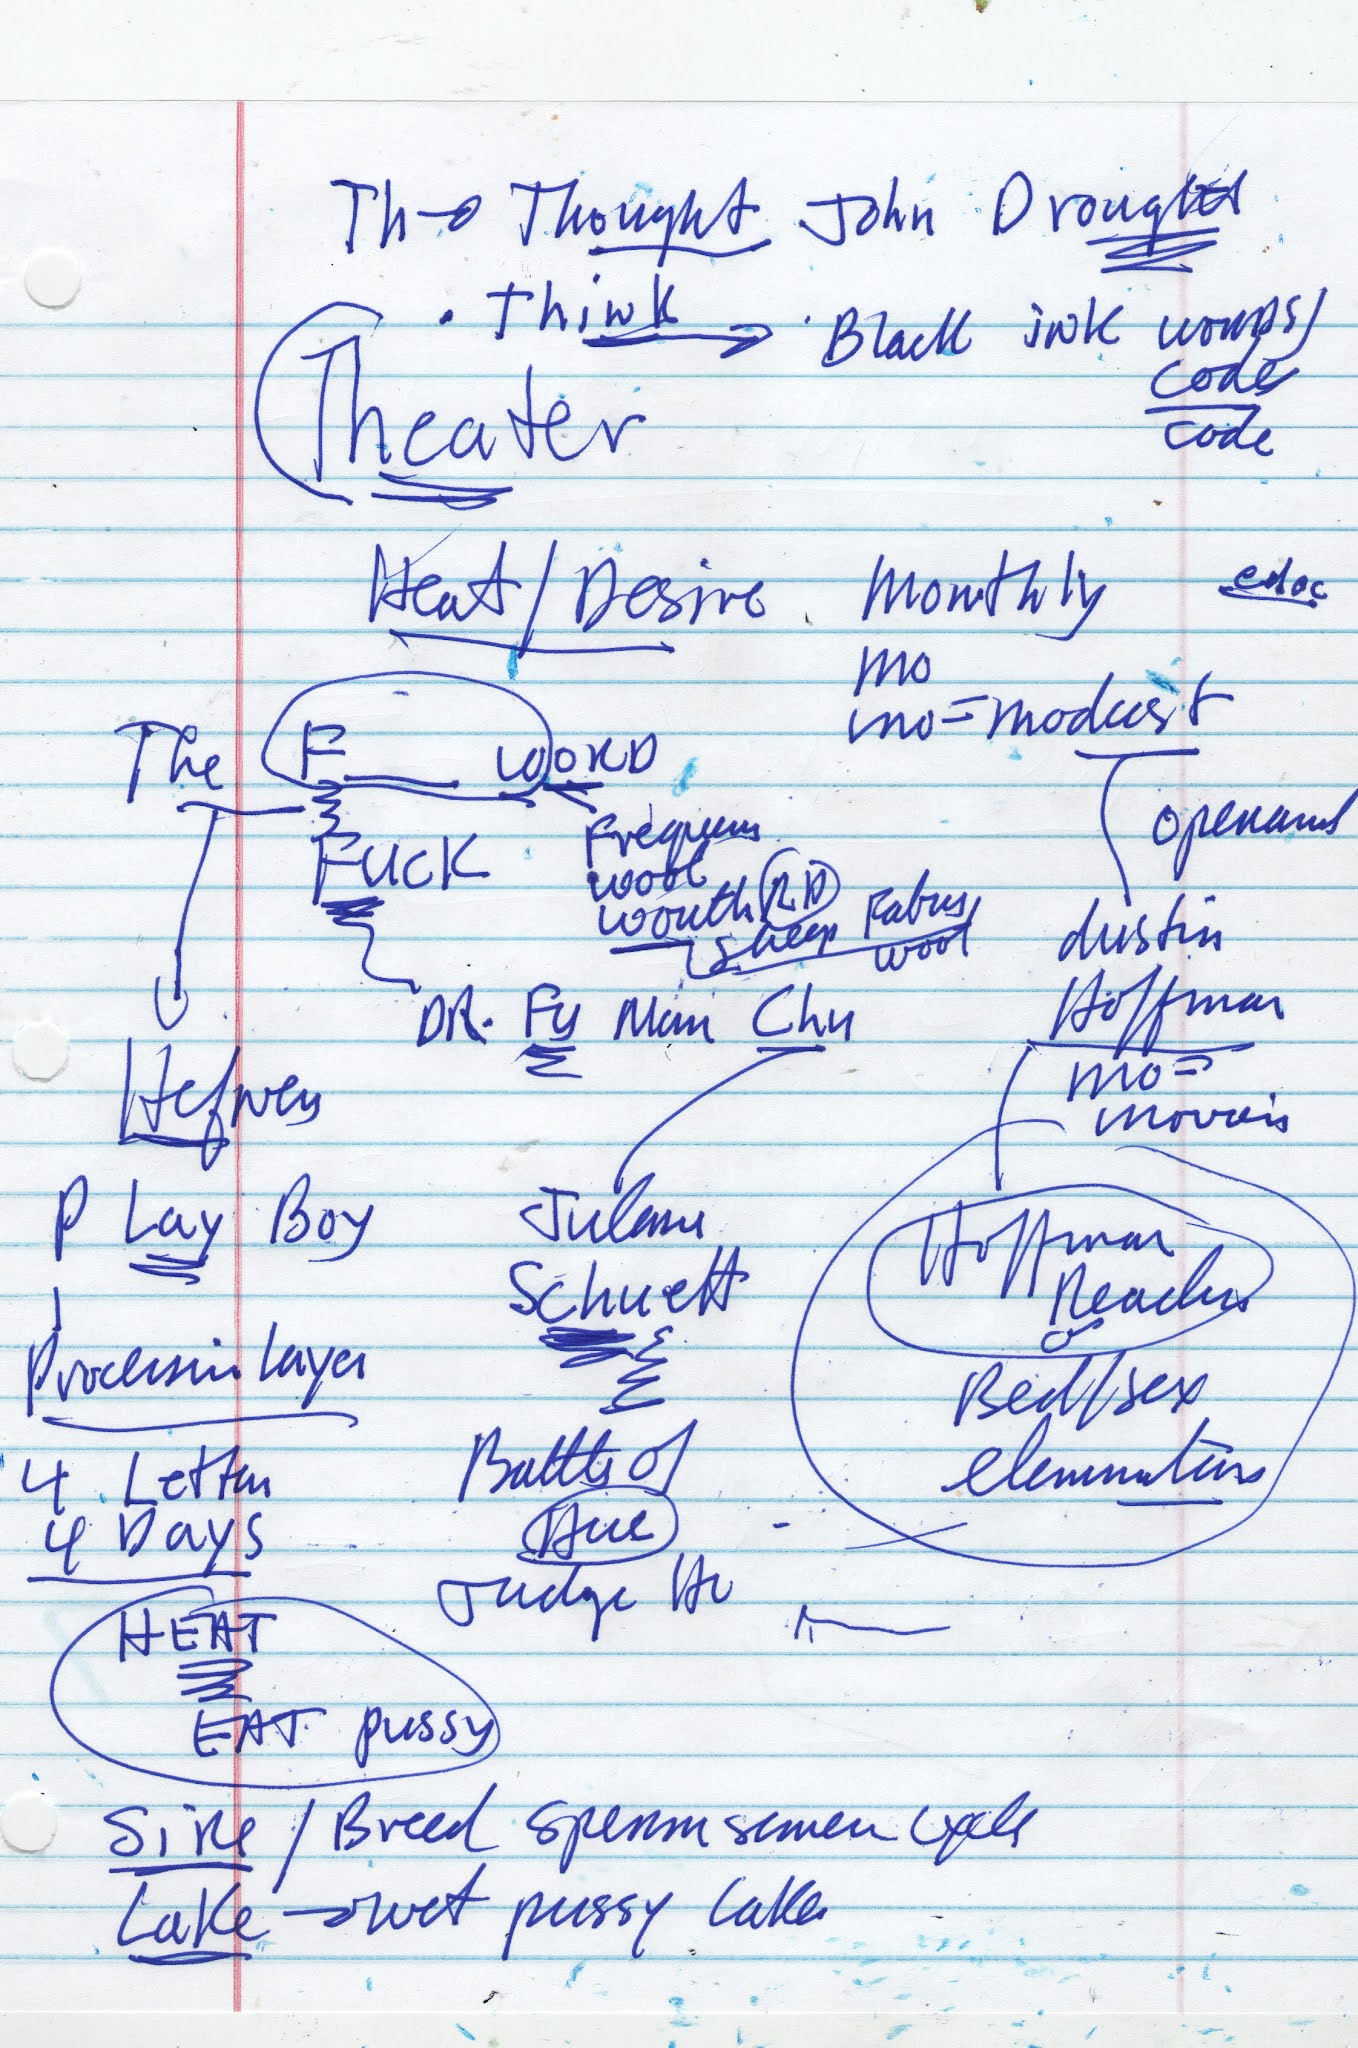 Th→ Thought John Drought
• Think → Black ink words/
codes
code
Theater
Heat/Desire Monthly edoc
mo
The F____ WORD mo=modust
FUCK Frequens
wool
wouth RD
sheep Fabus
wool
operand
dustin
Hoffman
DR. Fu Man Chu
mo=
Hefners
P Lay Boy
Julann
Schuett
Hoffman
Reaches
or
Processin Layer
Bed/sex
eleminations
4 Letter
4 Days
Battle of
Hue
Judge Hu
HEAT
EAT pussy
Sire / Breed sperm semen cycle
Lake → wet pussy lake